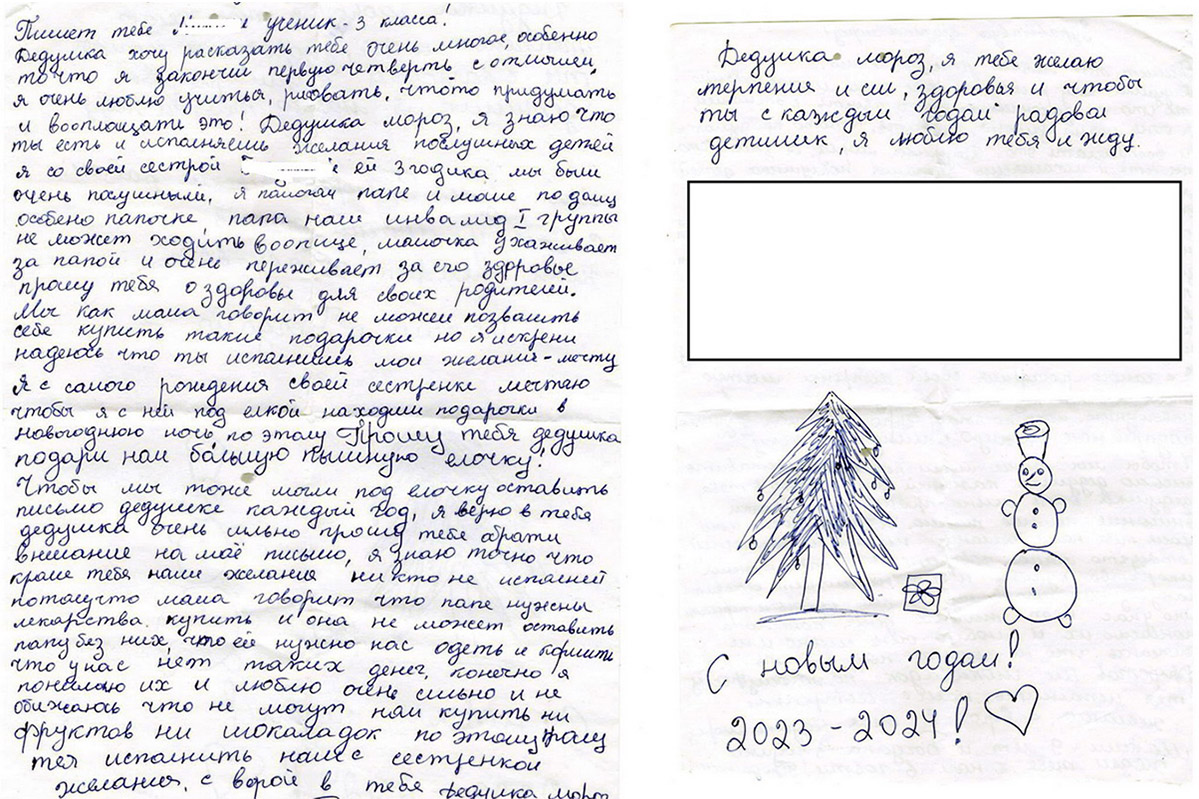 Пишет тебе ученик - 3 класса!
Дедушка хочу рассказать тебе очень многое, особенно
то что я закончил первую четверть с отличием,
я очень люблю учиться, рисовать, чтото придумать
и вооплощати это! Дедушка мороз, я знаю что
ты есть и исполняешь желания послушных детей
я со своей сестрой ей 3 годика мы были
очень послушными, я помогал папе и маме по дому
особено папочке папа наш инвалид I группы
не может ходить воопще, мамочка ухаживает
за папой и очень переживает за его здоровье
прошу тебя о здоровье для своих родителей.
Мы как мама говорит не можем позволить
себе купить такие подарочки но я искрени
надеюсь что ты исполнишь мои желания - мечту
Я с самого рождения своей сестренке мечтаю
чтобы я с ней под елкой находили подарочки в
новогоднюю ночь, по этому Прошу тебя дедушка
подари нам большую пышную елочку!
Чтобы мы тоже могли под елочку оставить
письмо дедушке каждый год, я верю в тебя
дедушка очень сильно прошу тебе обрати
внимание на моё письмо, я знаю точно что
кроме тебя наши желания ни кто не исполней
потомучто мама говорит что папе нужны
лекарства купить и она не может оставить
папу без них, что ей нужно нас одеть и кормити
что у нас нет таких денег, конечно я
понимаю их и люблю очень сильно и не
обижаюсь что не могут нам купить ни
фруктов ни шокаладок по этому прошу
тея исполнить наше с сестренкой
желания, с верой в тебя дедушка мороз
Дедушка мороз, я тебе желаю
терпения и сил, здоровья и чтобы
ты с каждым годом радовал
детишик, я люблю тебя и жду.
С новым годом!
2023 - 2024!